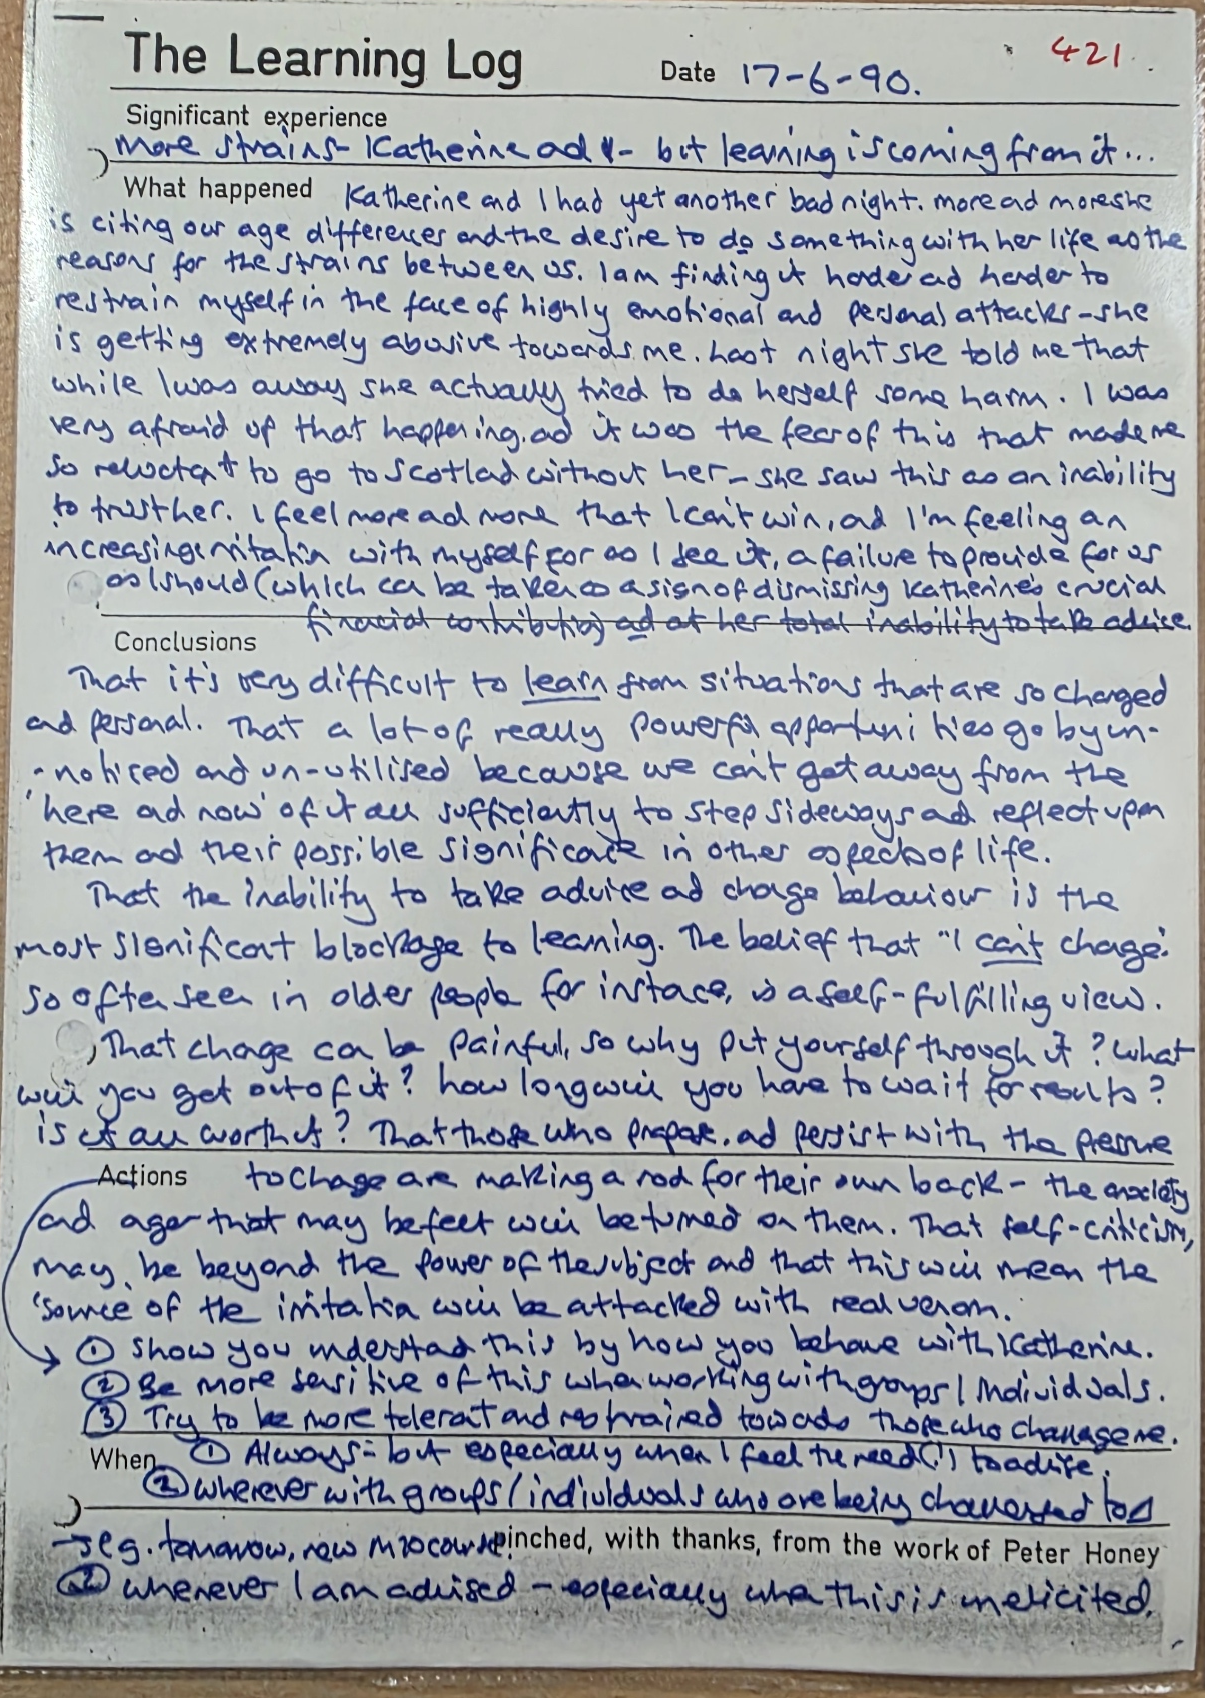 The Learning Log
Date 17-6-90.
421
Significant experience
More strains - Katherine ad I - but learning is coming from it...
What happened Katherine and I had yet another bad night. More ad more she
is citing our age differences and the desire to do something with her life as the
reasons for the strains between us. I am finding it harder ad harder to
restrain myself in the face of highly emotional and personal attacks - she
is getting extremely abusive towards me. Last night she told me that
while I was away she actually tried to do herself some harm. I was
very afraid of that happening, ad it was the fear of this that made me
so reluctant to go to Scotlad without her - she saw this as an inability
to trust her. I feel more ad more that I can't win, ad I'm feeling an
increasing irritation with myself for as I see it, a failure to provide for us
as I should (which can be taken as a sign of dismissing Katherine's crucial
financial contribution) ad at her total inability to take advice.
Conclusions
That it's very difficult to learn from situations that are so charged
and personal. That a lot of really powerful opportunities go by un-
-noticed and un-utilised because we can't get away from the
'here ad now' of it all sufficiently to step sideways ad reflect upon
them and their possible significance in other aspects of life.
That the inability to take advice ad change behaviour is the
most significant blockage to learning. The belief that "I can't change"
so often seen in older people for instance, is a self-fulfilling view.
That change can be painful, so why put yourself through it? What
will you get out of it? how long will you have to wait for results?
is it all worth it? That those who propose ad persist with the pressure
Actions to change are making a rod for their own back - the anxiety
and anger that may be felt will be turned on them. That self-criticism,
may, be beyond the power of the subject and that this will mean the
'source of the irritation will be attacked with real venom.
① Show you understand this by how you behave with Katherine.
② Be more sensitive of this when working with groups / individuals.
③ Try to be more tolerant and restrained towards those who challenge me.
When ① Always - but especially when I feel the need (!) to advise.
② wherever with groups / individuals who are being challenged to Δ
→ eg. tomorrow, new M20 course
pinched, with thanks, from the work of Peter Honey
③ whenever I am advised - especially when this is unelicited.